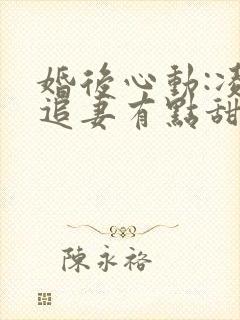 婚後心動:凌
追妻有點甜
陳永裕